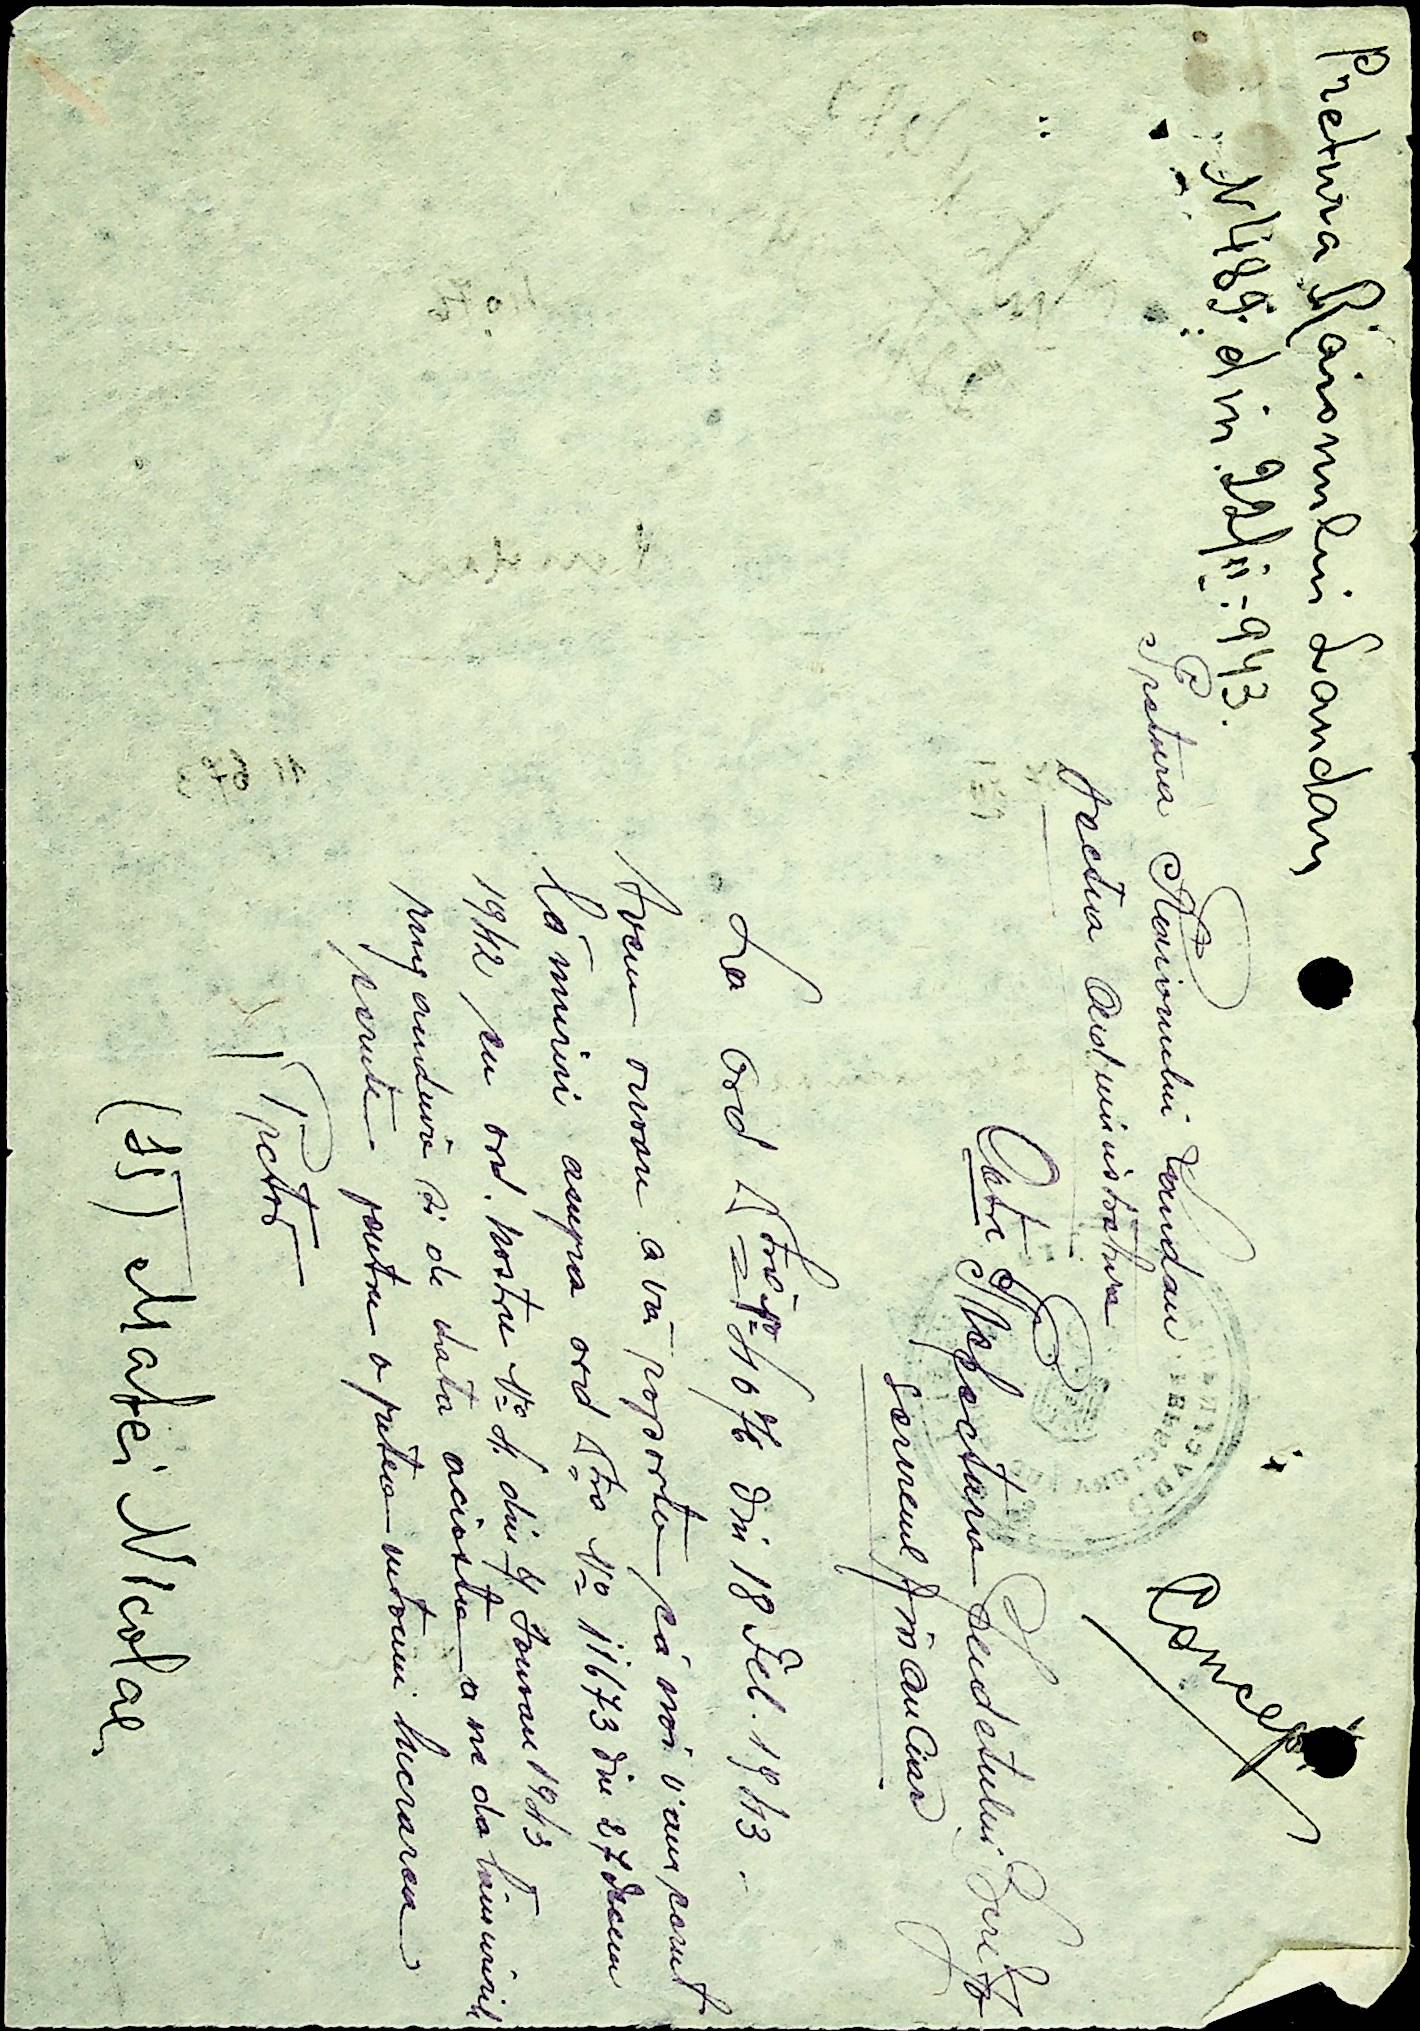 Pretura Raionului Landau
N 489. din 22/II-943.
Concept
Pretura Raionului Landau
Sectia Administrativa
Catre Prefectura Judetului Berezo
Serviciul financiar
La Ord. Dvs. No 4076 din 18 Feb. 1943.
Avem onoare a va raporta ca noi v'am cerut
lamuriri asupra ord Dvs No 11673 din 27 Decem
1942 cu ord. nostru No 4 din 4 Ianuar 1943
rugandu-va si de data aceasta a ne da lamuririle
cerute pentru a putea intocmi lucrarea
Pretor
(ss) Matei Nicolae